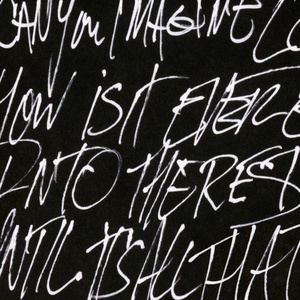 CAN YOU IMAGINE
HOW IS IT EVER
INTO THE REST
NTIL IT'S ALL THAT